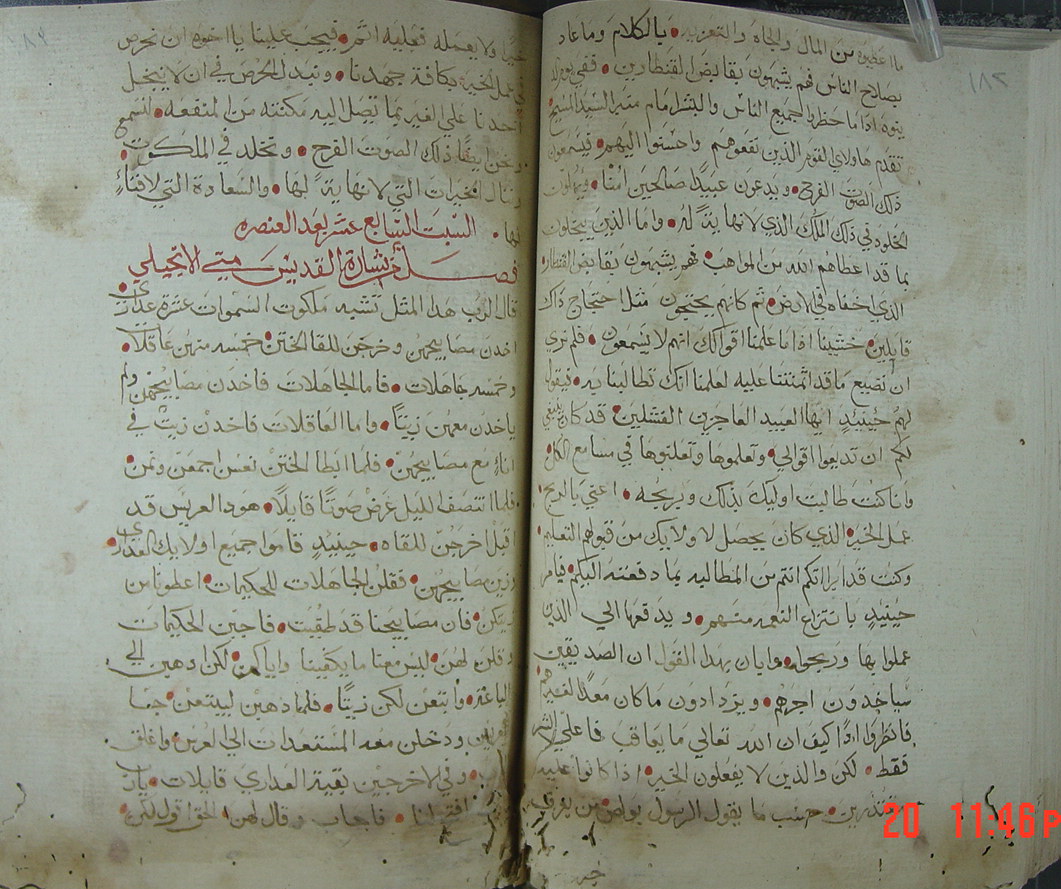 ١٨٢
ما اعطيو من المال والجاه والتعزيه • يالكلام وماعاد
بصلاح الناس فهم يشبهون بقابض القنطارين • ففي يوم
اذا ما حظر يا لجميع الناس والبشر امام منبر السيد المسيح
تقدم هاولاي القوم الذين نفعوهم واحسنوا اليهم • فيسمعون
ذلك الصوت الفرح • ويدعون عبيدًا صالحين امنا •
الخلود في ذلك الملك الذي لانهاية له • واما الذين يبخلون
بما قد اعطاهم الله من المواهب • فهم يشبهون بقابض القنطار
الذي اخفاه في الارض • ثم كانهم يحتجون مثل احتجاج ذاك
قايلين • خشينا اذا ما علمنا اقوالك انهم لا يسمعون • فلم نري
ان نضيع ما قد اتمنتنا عليه لعلمنا انك تطالبنا به • فيقول
لهم حينيدٍ ايها العبيد العاجزين الفشلين • قد كان ينبغي
لكم ان تديعوا اقوالي • وتعلموها وتعلنوها في مسامع الكل
وانا كنت طالبت اوليك بذلك وبربحه • اعني بالربح
عمل الخير • الذي كان يحصل لاولايك من قبولهم التعليم
وكنت قد ابراتكم انتم من المطالبه بما دفعته اليكم • فيامر
حينيدٍ بانتزاع النعمه منهم • ويدفعها الي الذين
عملوا بها وربحوا • وابان بهدا القول ان الصديقين
سياخدون اجرهم • ويزدادون ما كان معدًا لغيرهم
فانظروا ادًا كيف ان الله تعالي ما يعاقب فاعلي الشر
فقط • لكن والدين لا يفعلون الخير • اذا كانوا عليه
مقتدرين • حسب ما يقول الرسول بولص من يعرف
خيرًا ولا يعمله فعليه اثم • فيجب علينا يا اخوه ان نحرص
في عمل الخير بكافة جهدنا • ونبدل الحرص في ان لا يبخل
احدنا علي الغير بما تصل اليه مكنته من المنفعه • لنسمع
نحن ايضًا ذلك الصوت الفرح • ونخلد في الملكوت
وننال الخيرات التي لا نهاية لها • والسعادة التي لافناء
لها •
السبت السابع عشر بعد العنصره
فصل من بشارة القديس متي الانجيلي
قال الرب هدا المثل تشبه ملكوت السموات عشرة عداري
اخدن مصابيحهن وخرجن للقا الختن • خمسه منهن عاقلا •
وخمسه جاهلات • فاما الجاهلات فاخدن مصابيحهن ولم
ياخدن معهن زيتًا • واما العاقلات فاخدن زيت في
اناء مع مصابيحهن • فلما ابطا الختن نعسن اجمعن ونمن •
فلما انتصف الليل عرض صوتًا قايلًا • هودا العريس قد
اقبل اخرجن للقاه • حينيدٍ قاموا جميع اولايك العداري
وزين مصابيحهن • فقلن الجاهلات للحكيمات • اعطونا من
زيتكن • فان مصابيحنا قد طفيت • فاجبن الحكيمات
وقلن لهن • ليس معنا ما يكفينا واياكن • لكن ادهبن الي
الباعه • وابتعن لكن زيتًا • فلما دهبن ليبتعن • جا
العريس ودخلن معه المستعدات الي العرس • واغلق
الباب • وفي الاخر جين بقية العداري قايلات • يارب
افتح لنا • فاجاب وقال لهن • الحق اقول لكن